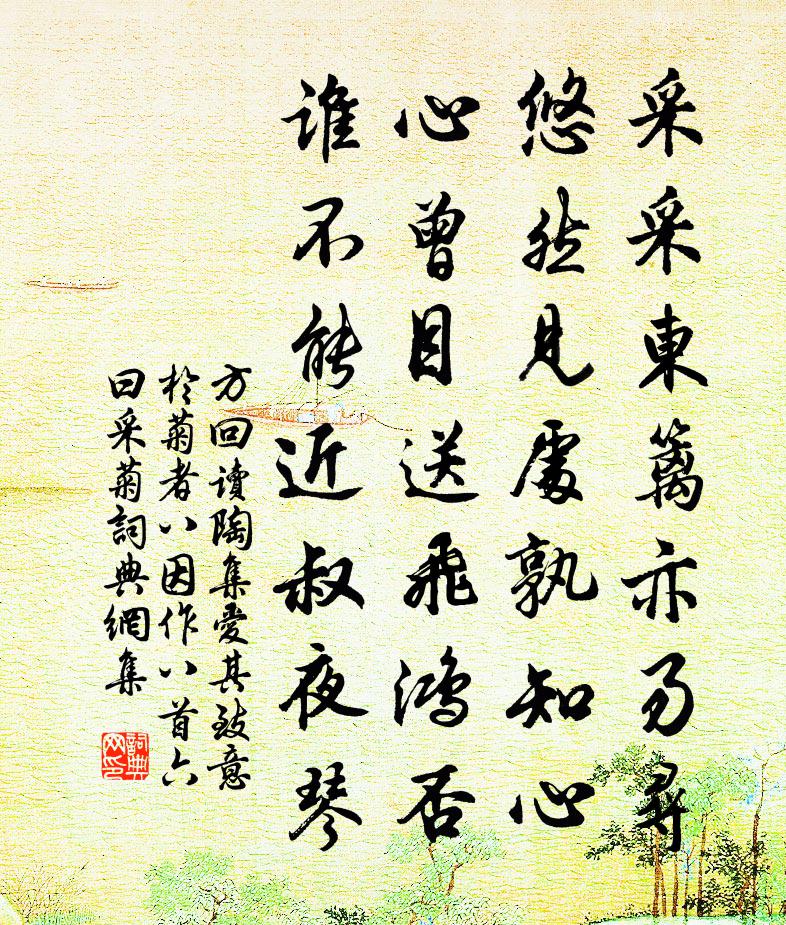 采采東籬亦易尋
悠然見處孰知心
心曾目送飛鴻否
誰不能近叔夜琴
方回讀陶集愛其致意
於菊者八因作八首六
曰采菊詞典網集
詞典
网印